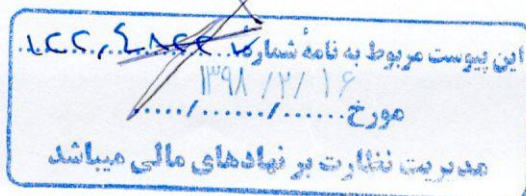 این پیوست مربوط به نامهٔ شماره
۱۳۹۸/۲/۱۶
مورخ....../....../......
مدیریت نظارت بر نهادهای مالی میباشد